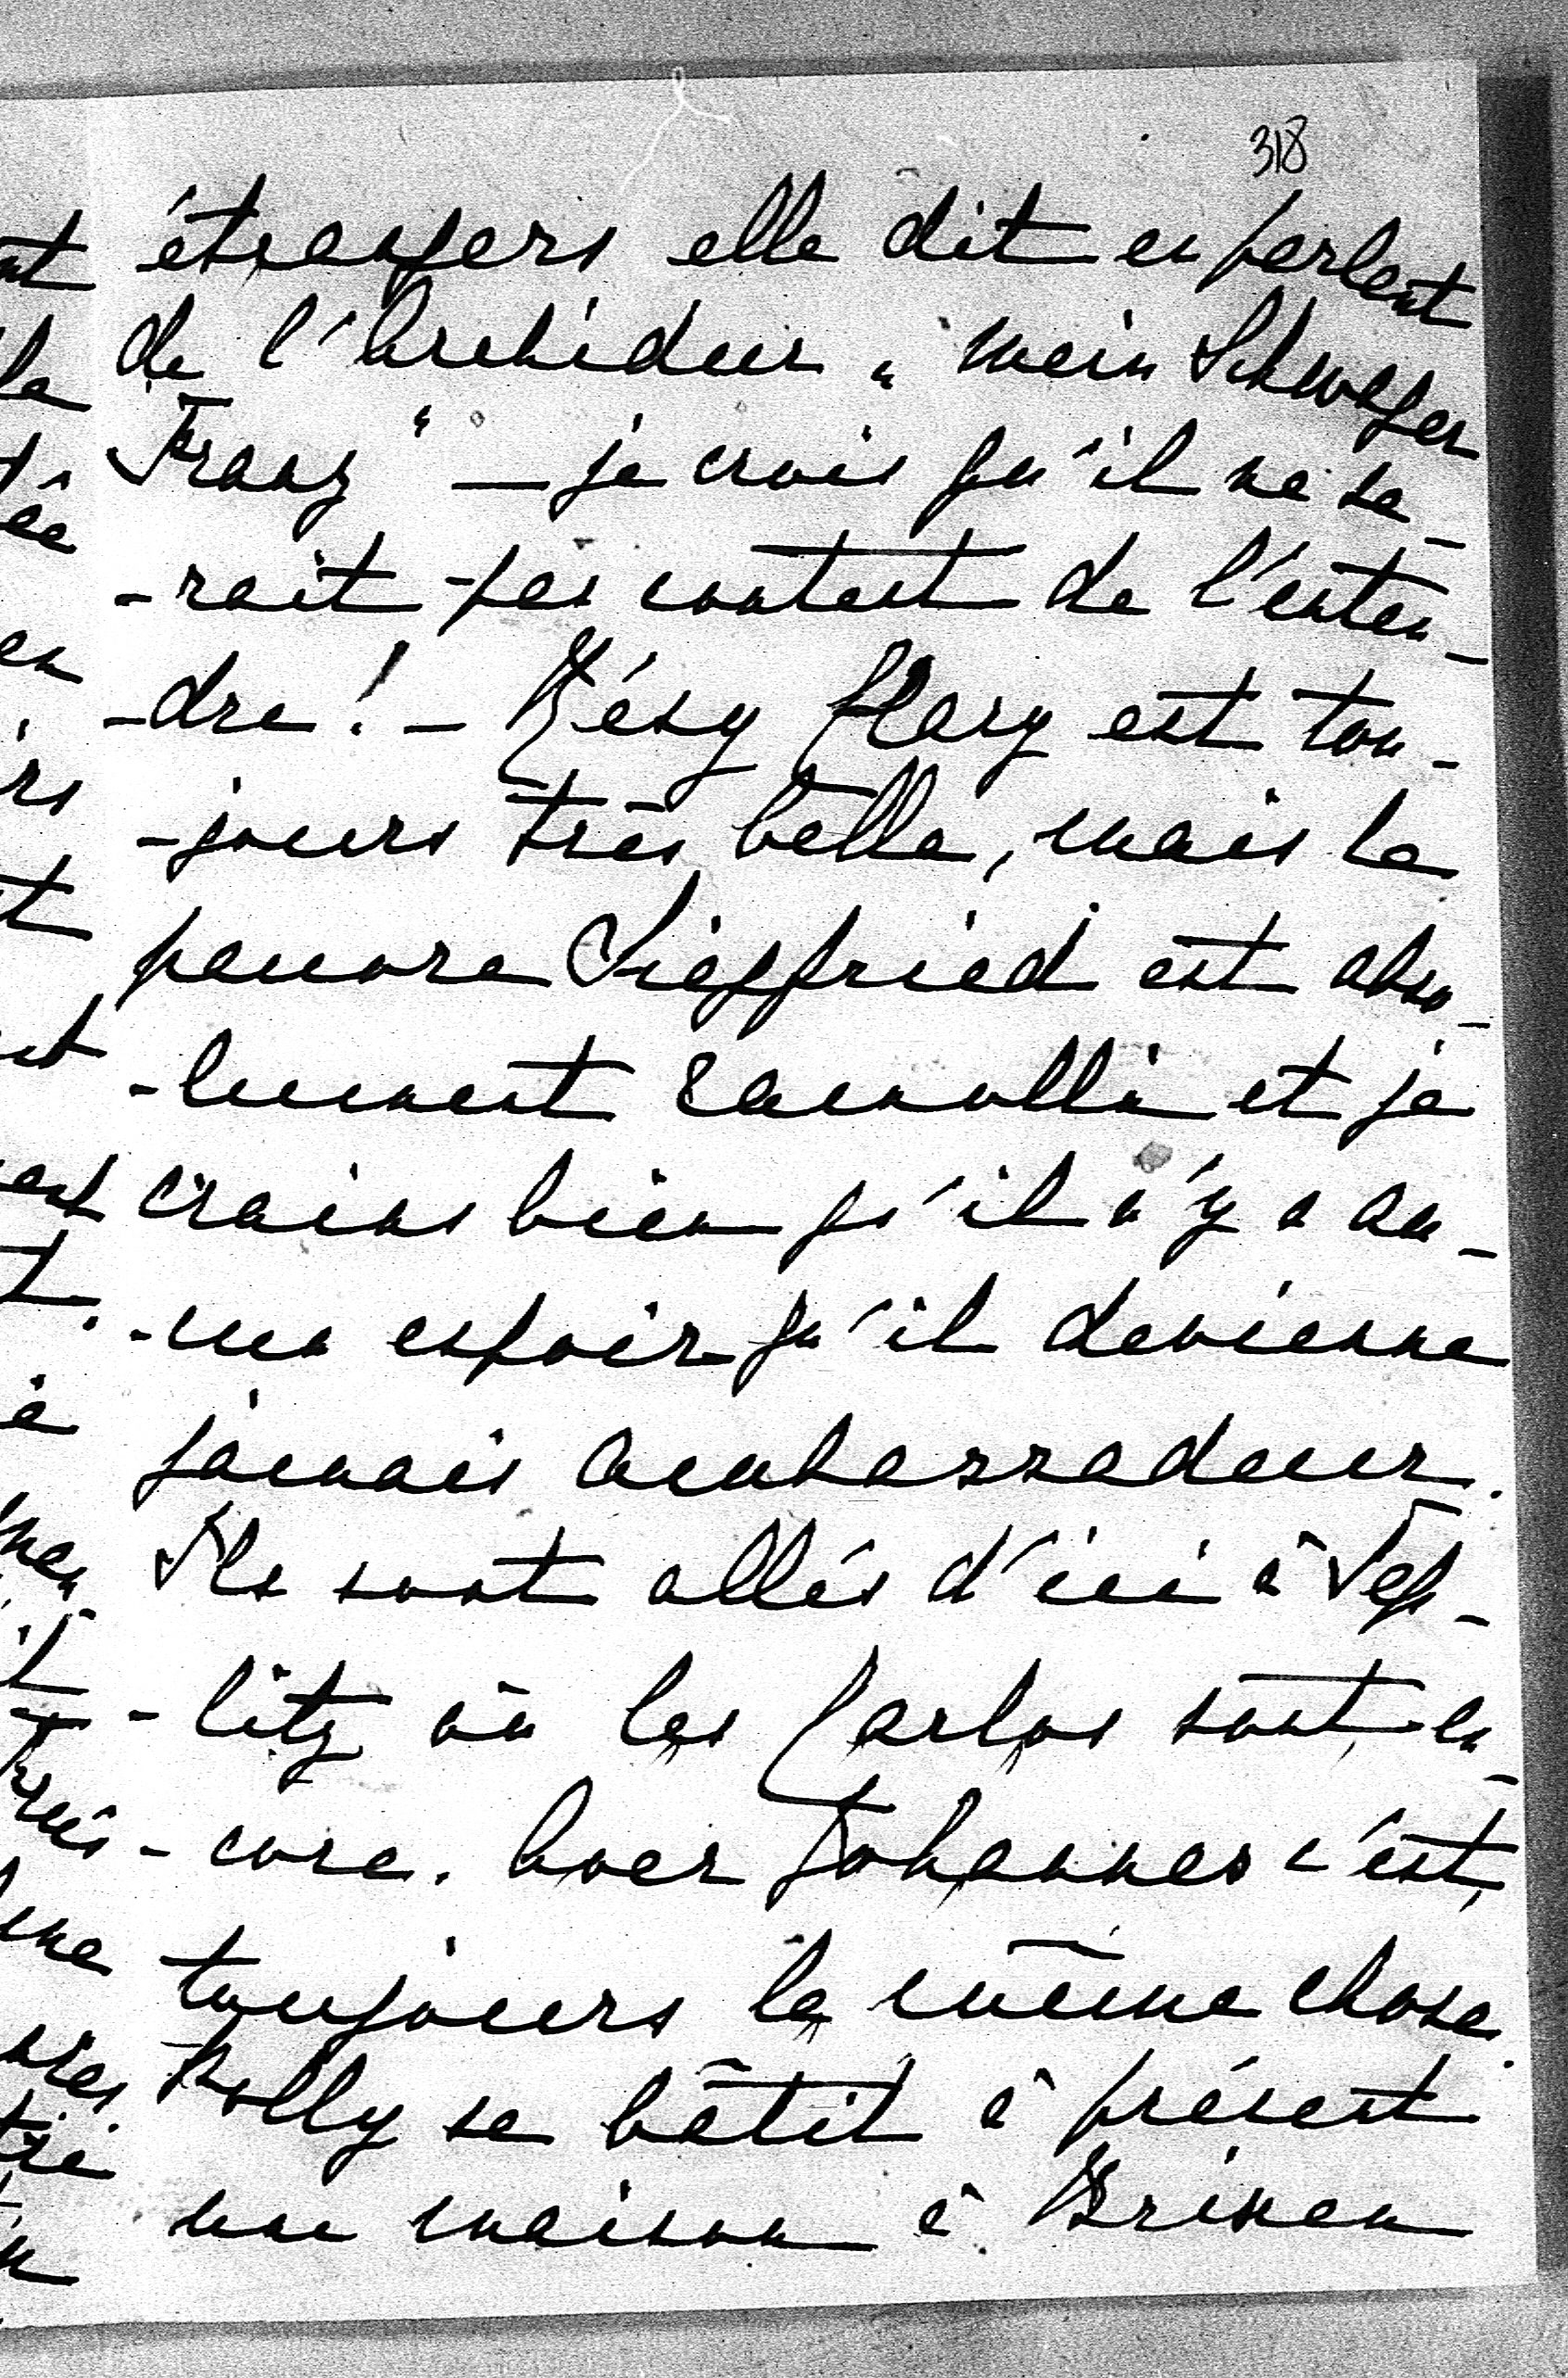 318
étrangers elle dit en parlant
de l'Archiduc „mein Schwager
Franz" — je crois qu'il ne se-
-rait pas content de l'enten-
-dre! - Clary est tou-
-jours très belle, mais le
pauvre Siegfried est abso-
-lument ramolli et je
crains bien qu'il n'y a au-
-cun espoir qu'il devienne
jamais Ambassadeur.
Ils sont allés d'ici à Tep-
-litz où les Carlos sont en-
-core. Avec Johannes c'est
toujours la même chose.
Polly se bâtit à présent
une maison à Brixen